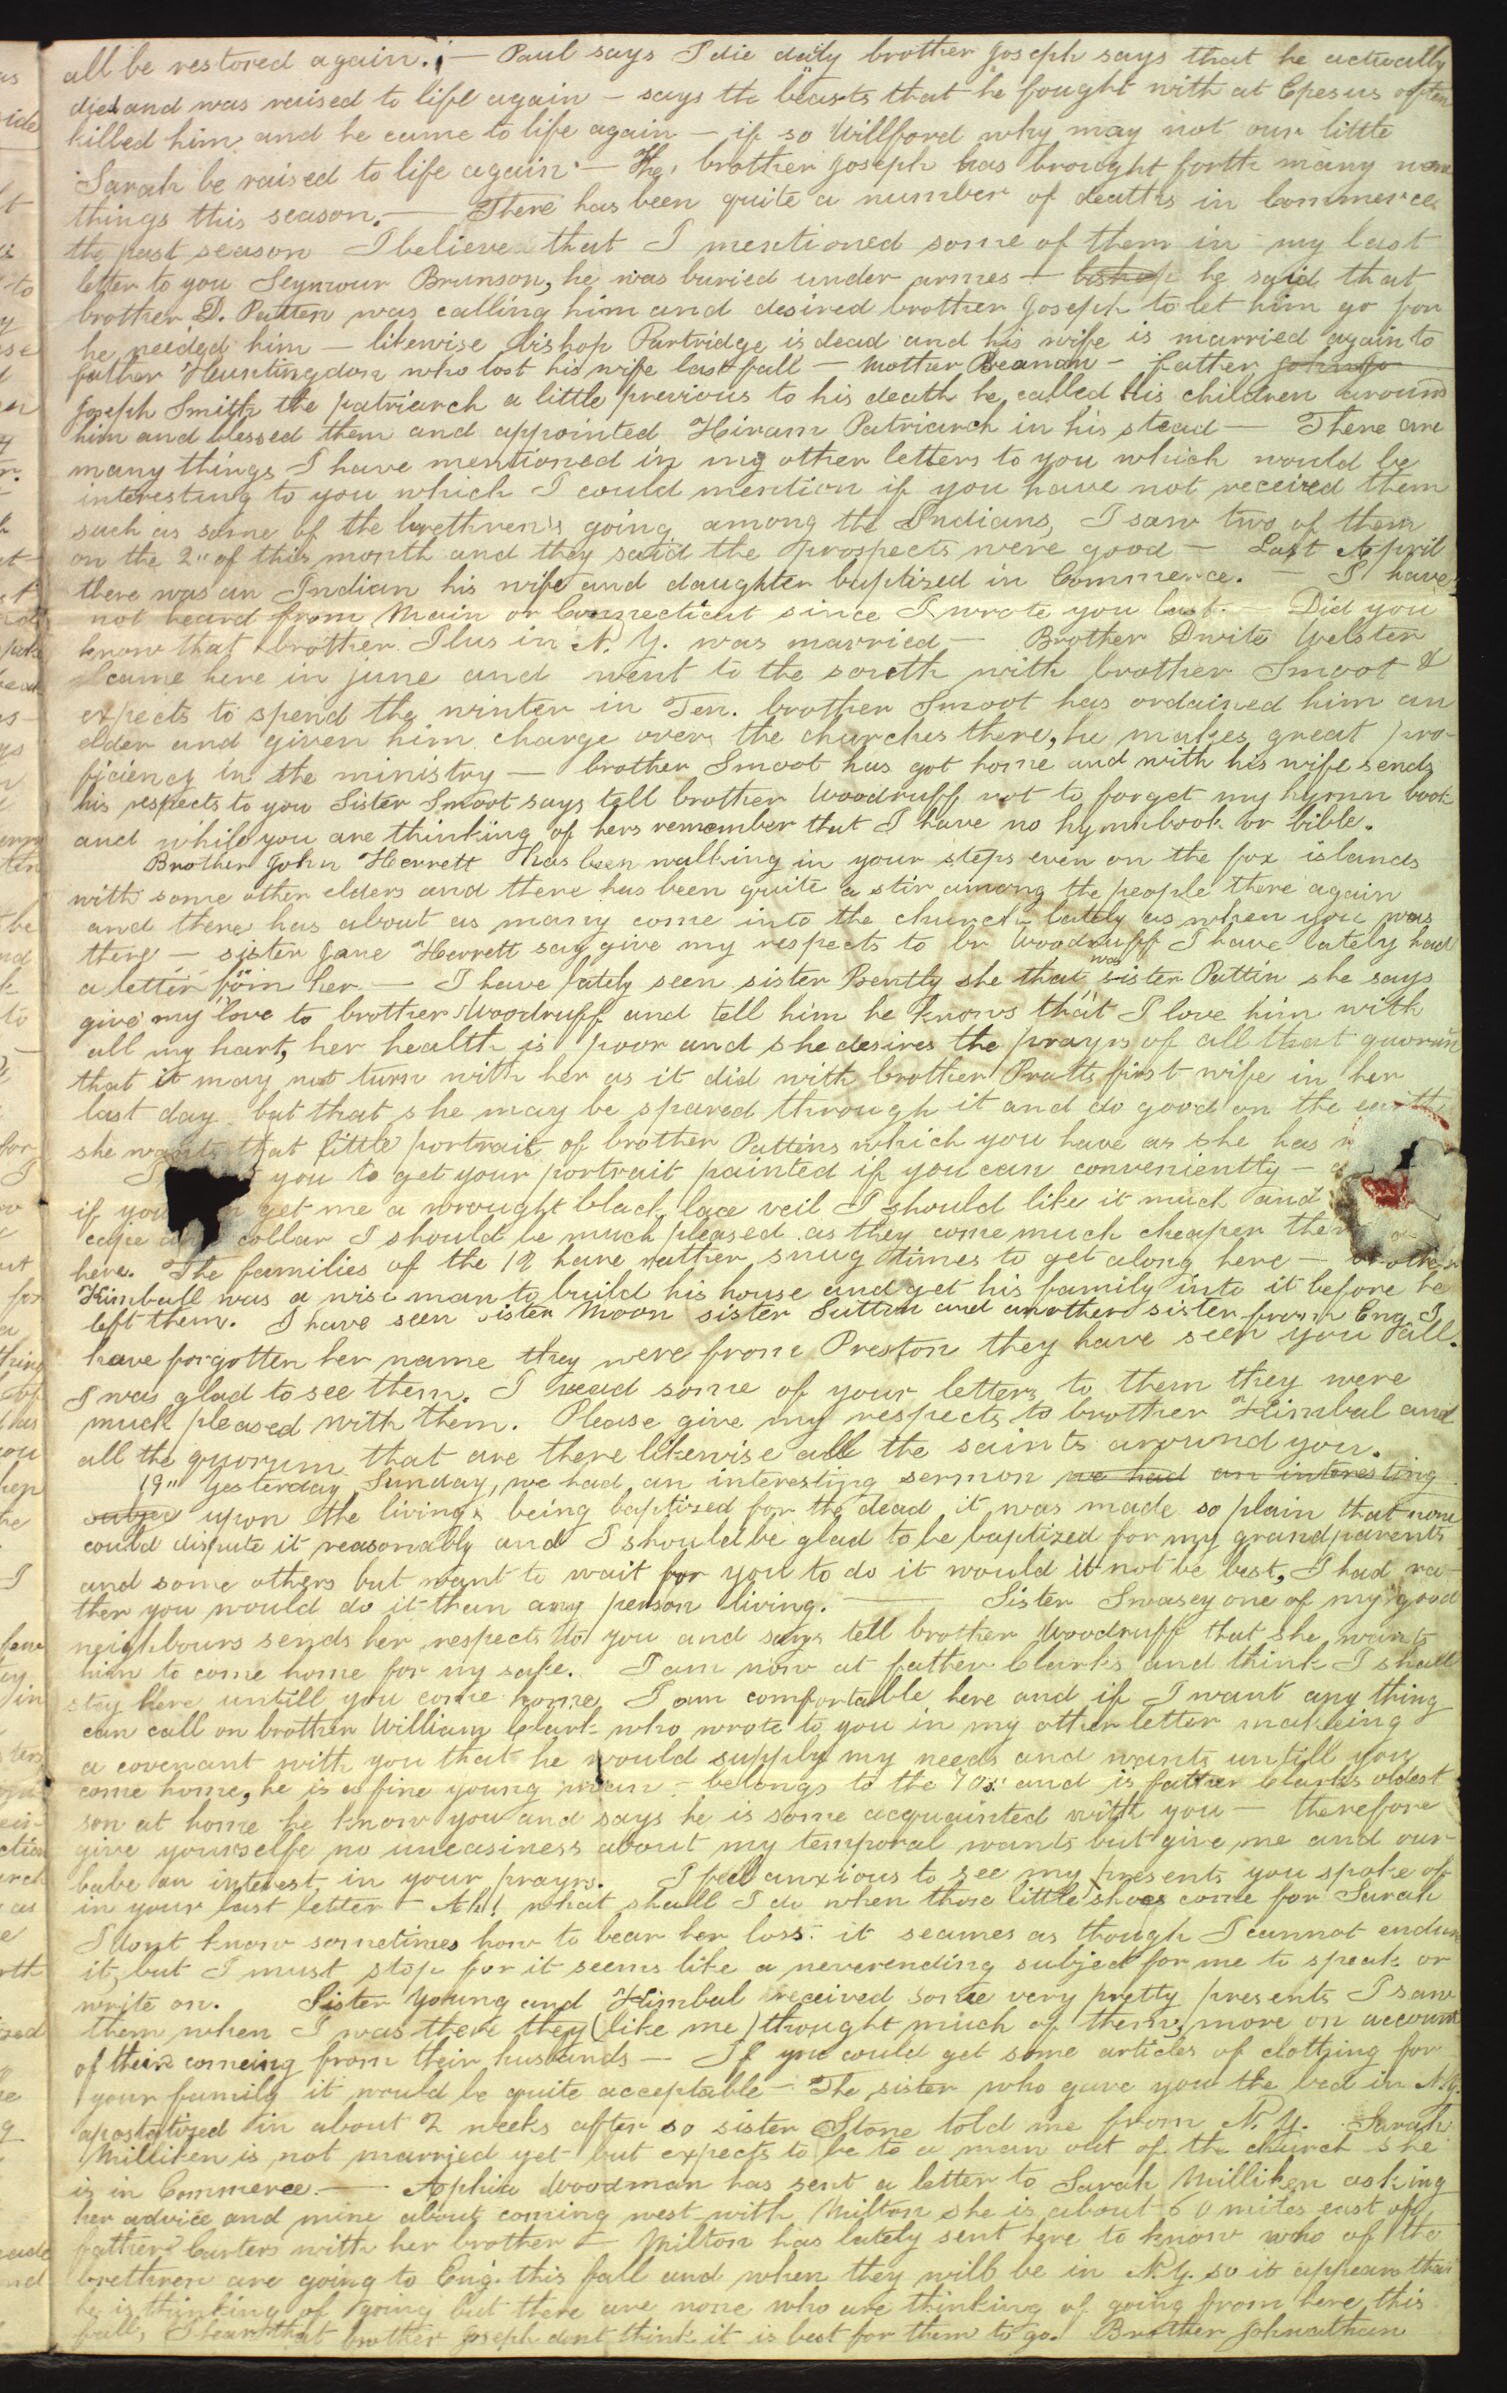 all be restored again. — Paul says I die daily brother Joseph says that he actually
died and was raised to life again — says the beasts that he fought with at Epesus often
killed him and he came to life again — if so Willford why may not our little
Sarah be raised to life again — The brother Joseph has brought forth many new
things this season. — There has been quite a number of deaths in Commerce
the past season I believe that I mentioned some of them in my last
letter to you Seymour Brunson, he was buried under armes — bishop he said that
brother D. Patten was calling him and desired brother Joseph to let him go for
he needed him — likewise bishop Partridge is dead and his wife is married again to
father Huntingdon who lost his wife last fall — Mother Beaman — father
Joseph Smith the patriarch a little previous to his death he called his children around
him and blessed them and appointed Hiram Patriarch in his stead — There are
many things I have mentioned in my other letters to you which would be
interesting to you which I could mention if you have not received them
such as some of the brethren's going among the Indians, I saw two of them
on the 2" of this month and they said the prospects were good — Last April
there was an Indian his wife and daughter baptised in Commerce. — I have
not heard from Main or Connecticut since I wrote you last. — Did you
know that brother Ilus in N. Y. was married — Brother Dwite Webster
came here in june and went to the south with brother Smoot &
expects to spend the winter in Ten. brother Smoot has ordained him an
elder and given him charge over the churches there, he makes great pro-
ficiency in the ministry — brother Smoot has got home and with his wife sends
his respects to you Sister Smoot says tell brother Woodruff not to forget my hymn book
and while you are thinking of hers remember that I have no hymnbook or bible.
Brother John Herrett has been walking in your steps even on the fox islands
with some other elders and there has been quite a stir among the people there again
and there has about as many come into the church lately as when you was
there — sister Jane Herrett say give my respects to br Woodruff I have lately had
a letter from her — I have lately seen sister Bently she that was sister Pattin she says
give my love to brother Woodruff and tell him he knows that I love him with
all my hart, her health is poor and she desires the prayrs of all that quorum
that it may not turn with her as it did with brother Pratts first wife in her
last day but that she may be spared through it and do good on the earth
she wants that little portrait of brother Pattins which you have as she has
I you to get your portrait painted if you can conveniently —
if you get me a wrought black lace veil I should like it much and
cape collar I should be much pleased as they come much cheaper ther
here. The families of the 12 have rather snug times to get along here — brother
Kimball was a wise man to build his house and get his family into it before he
left them. I have seen sister Moon sister Sutton and another sister from Eng I
have forgotten her name they were from Preston they have seen you all.
I was glad to see them. I read some of your letters to them they were
much pleased with them. Please give my respects to brother Kimbal and
all the quorum that are there likewise all the saints around you.
19" Yesterday Sunday, we had an interesting sermon we had an interesting
subjec upon the livings being baptised for the dead it was made so plain that none
could dispute it reasonably and I should be glad to be baptized for my grandparents
and some others but want to wait for you to do it would it not be best, I had ra-
ther you would do it than any person living. — Sister Swasey one of my good
neighbours sends her respects to you and says tell brother Woodruff that she wants
him to come home for my sake. I am now at father Clarks and think I shall
stay here untill you come home, I am comfortable here and if I want any thing
can call on brother William Clark who wrote to you in my other letter makeing
a covenant with you that he would supply my needs and wants untill you
come home, he is a fine young man — belongs to the 70s and is father Clarks oldest
son at home he know you and says he is some acquainted with you — therefore
give yourselfe no uneasiness about my temporal wants but give me and our
babe an interest in your prayrs. I feel anxious to see my presents you spoke of
in your last letter — Ah! what shall I do when those little shoes come for Sarah
I dont know sometimes how to bear her loss. it seames as though I cannot endure
it, but I must stop for it seems like a neverending subject for me to speak or
write on. Sister Young and Kimbal received some very pretty presents I saw
them when I was there they (like me) thought much of them, more on account
of their comeing from their husbands — If you could get some articles of clothing for
your family it would be quite acceptable — The sister who gave you the bed in N.Y.
apostatized in about 2 weeks after so sister Stone told me from N. Y. Sarah
Milliken is not married yet but expects to be to a man out of the church she
is in Commerce. — Aphia Woodman has sent a letter to Sarah Milliken asking
her advice and mine about coming west with Milton she is about 60 miles east of
father Carters with her brother — Milton has lately sent here to know who of the
brethren are going to Eng. this fall and when they will be in N.Y. so it appears that
he is thinking of going but there are none who are thinking of going from here this
fall, I hear that brother Joseph dont think it is best for them to go. Brother Johnathan